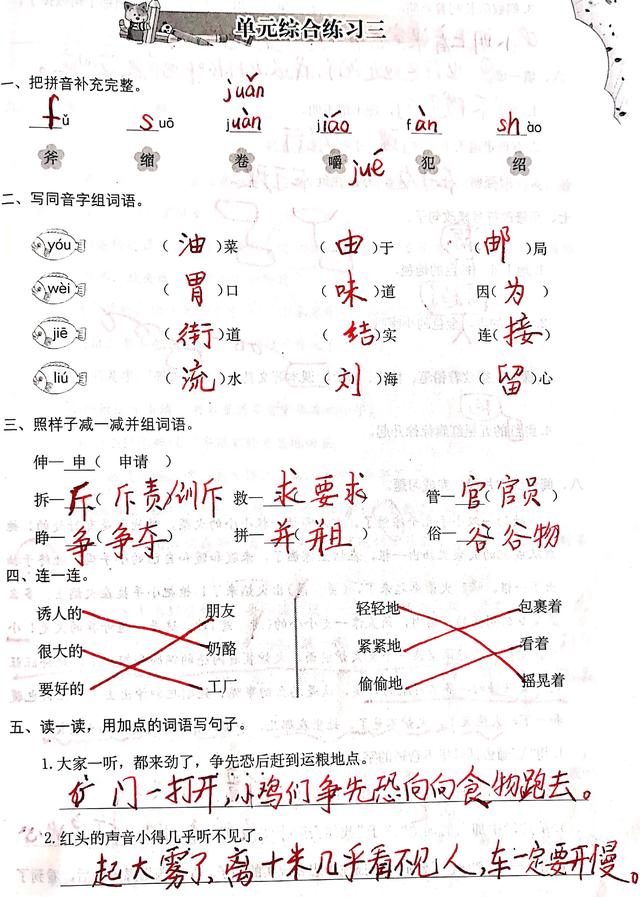 单元综合练习三
一、把拼音补充完整。
juǎn
fǔ suō juàn jiáo fàn shào
斧 缩 卷 嚼 犯 绍
jué
二、写同音字组词语。
yóu (油)菜 (由)于 (邮)局
wèi (胃)口 (味)道 因(为)
jiē (街)道 (结)实 连(接)
liú (流)水 (刘)海 (留)心
三、照样子减一减并组词语。
伸—申(申请)
拆—斥(斥责/训斥) 救—求(要求) 管—官(官员)
睁—争(争夺) 拼—并(并且) 俗—谷(谷物)
四、连一连。
诱人的 朋友 轻轻地 包裹着
很大的 奶酪 紧紧地 看着
要好的 工厂 偷偷地 摇晃着
五、读一读,用加点的词语写句子。
1.大家一听,都来劲了,争先恐后赶到运粮地点。
矿门一打开,小鸡们争先恐向向食物跑去。
2.红头的声音小得几乎听不见了。
起大雾了,离十米几乎看不见人,车一定要开慢。